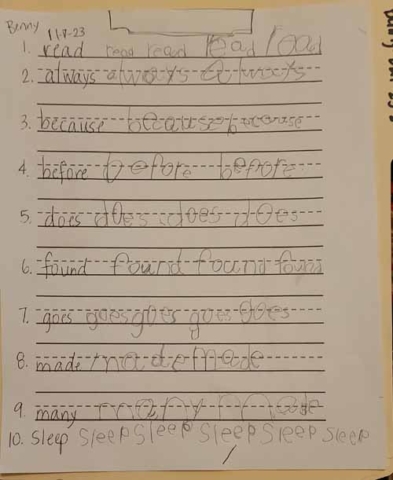 Benny
11-8-23
1. read read read read read
2. always always always
3. because because because
4. before before before
5. does does does does
6. found found found found
7. goes goes goes goes goes
8. made made made
9. many many
10. Sleep Sleep Sleep Sleep Sleep Sleep